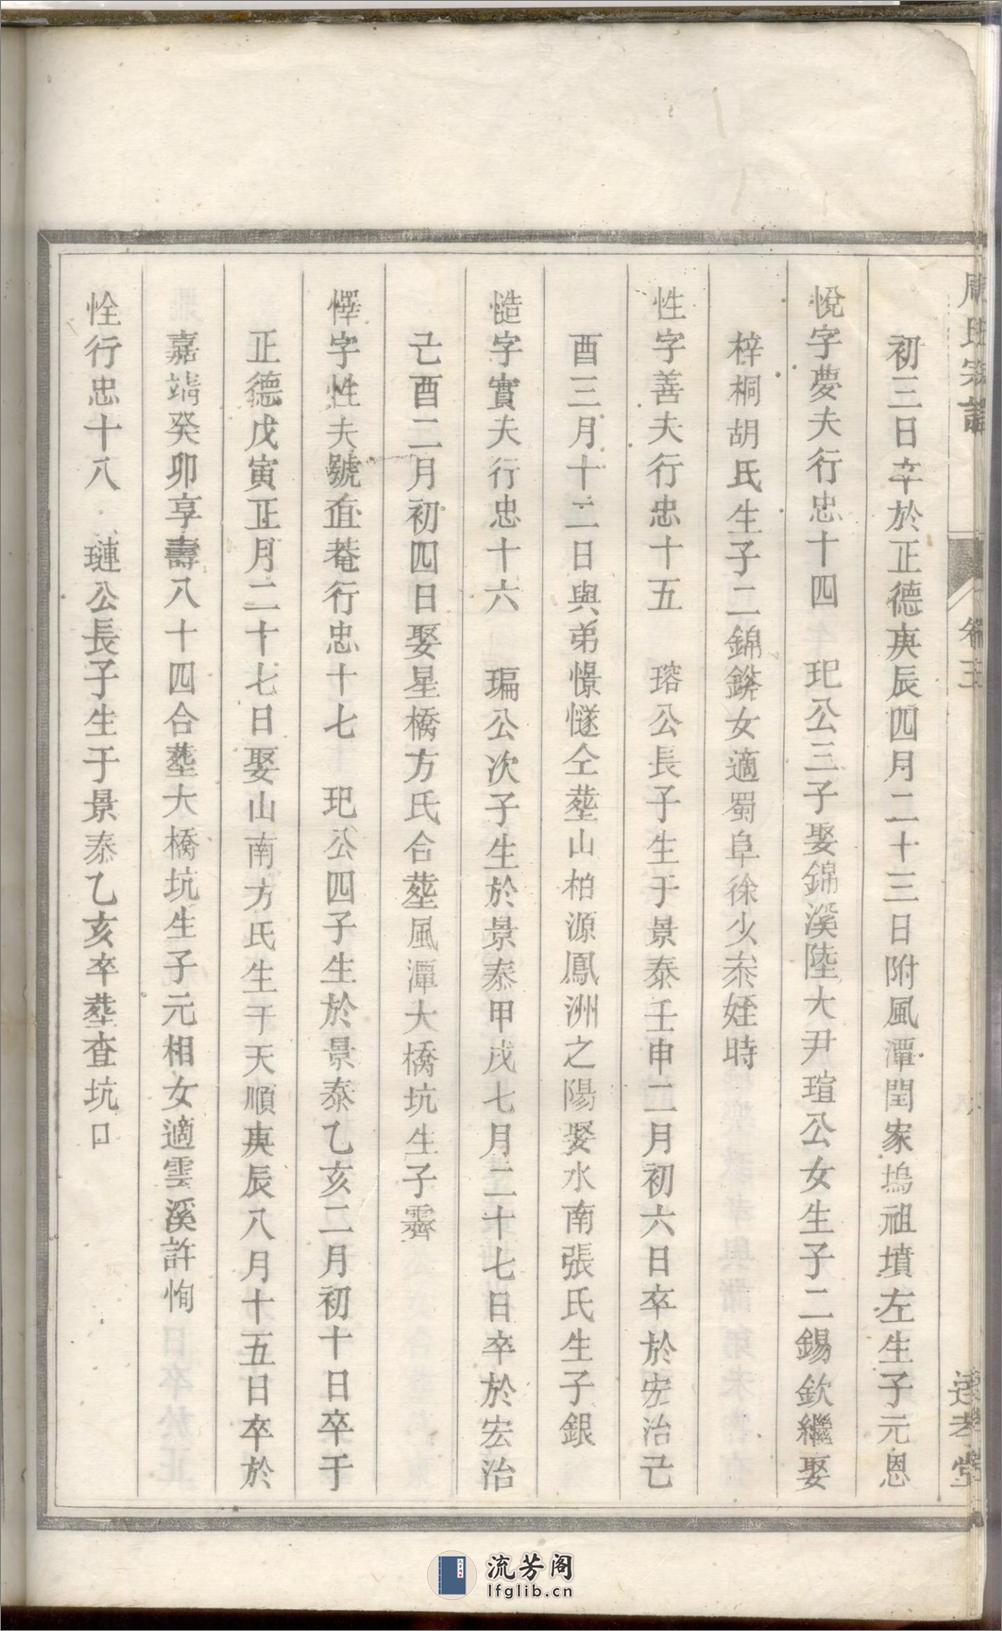 宗譜
卷三
初三日卒於正德庚辰四月二十三日附風潭閏家塢祖墳左生子元恩
悅字夢夫行忠十四 玘公三子娶錦溪陸大尹瑄公女生子二錫欽繼娶
梓桐胡氏生子二錦鏘女適蜀阜徐少泰姪時
性字善夫行忠十五 瑢公長子生于景泰壬申二月初六日卒於宏治己
酉三月十二日與弟憬憽仝塟山柏源鳳洲之陽娶水南張氏生子銀
慥字實夫行忠十六 瑥公次子生於景泰甲戌七月二十七日卒於宏治
己酉二月初四日娶星橋方氏合塟風潭大橋坑生子霽
懌字性夫號直菴行忠十七 玘公四子生於景泰乙亥二月初十日卒于
正德戊寅正月二十七日娶山南方氏生于天順庚辰八月十五日卒於
嘉靖癸卯享壽八十四合塟大橋坑生子元相女適雲溪許恂
恮行忠十八 璉公長子生于景泰乙亥卒塟查坑口
流芳阁
lfglib.cn